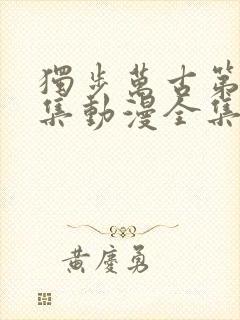 獨步萬古第
集動漫全集
黃慶勇